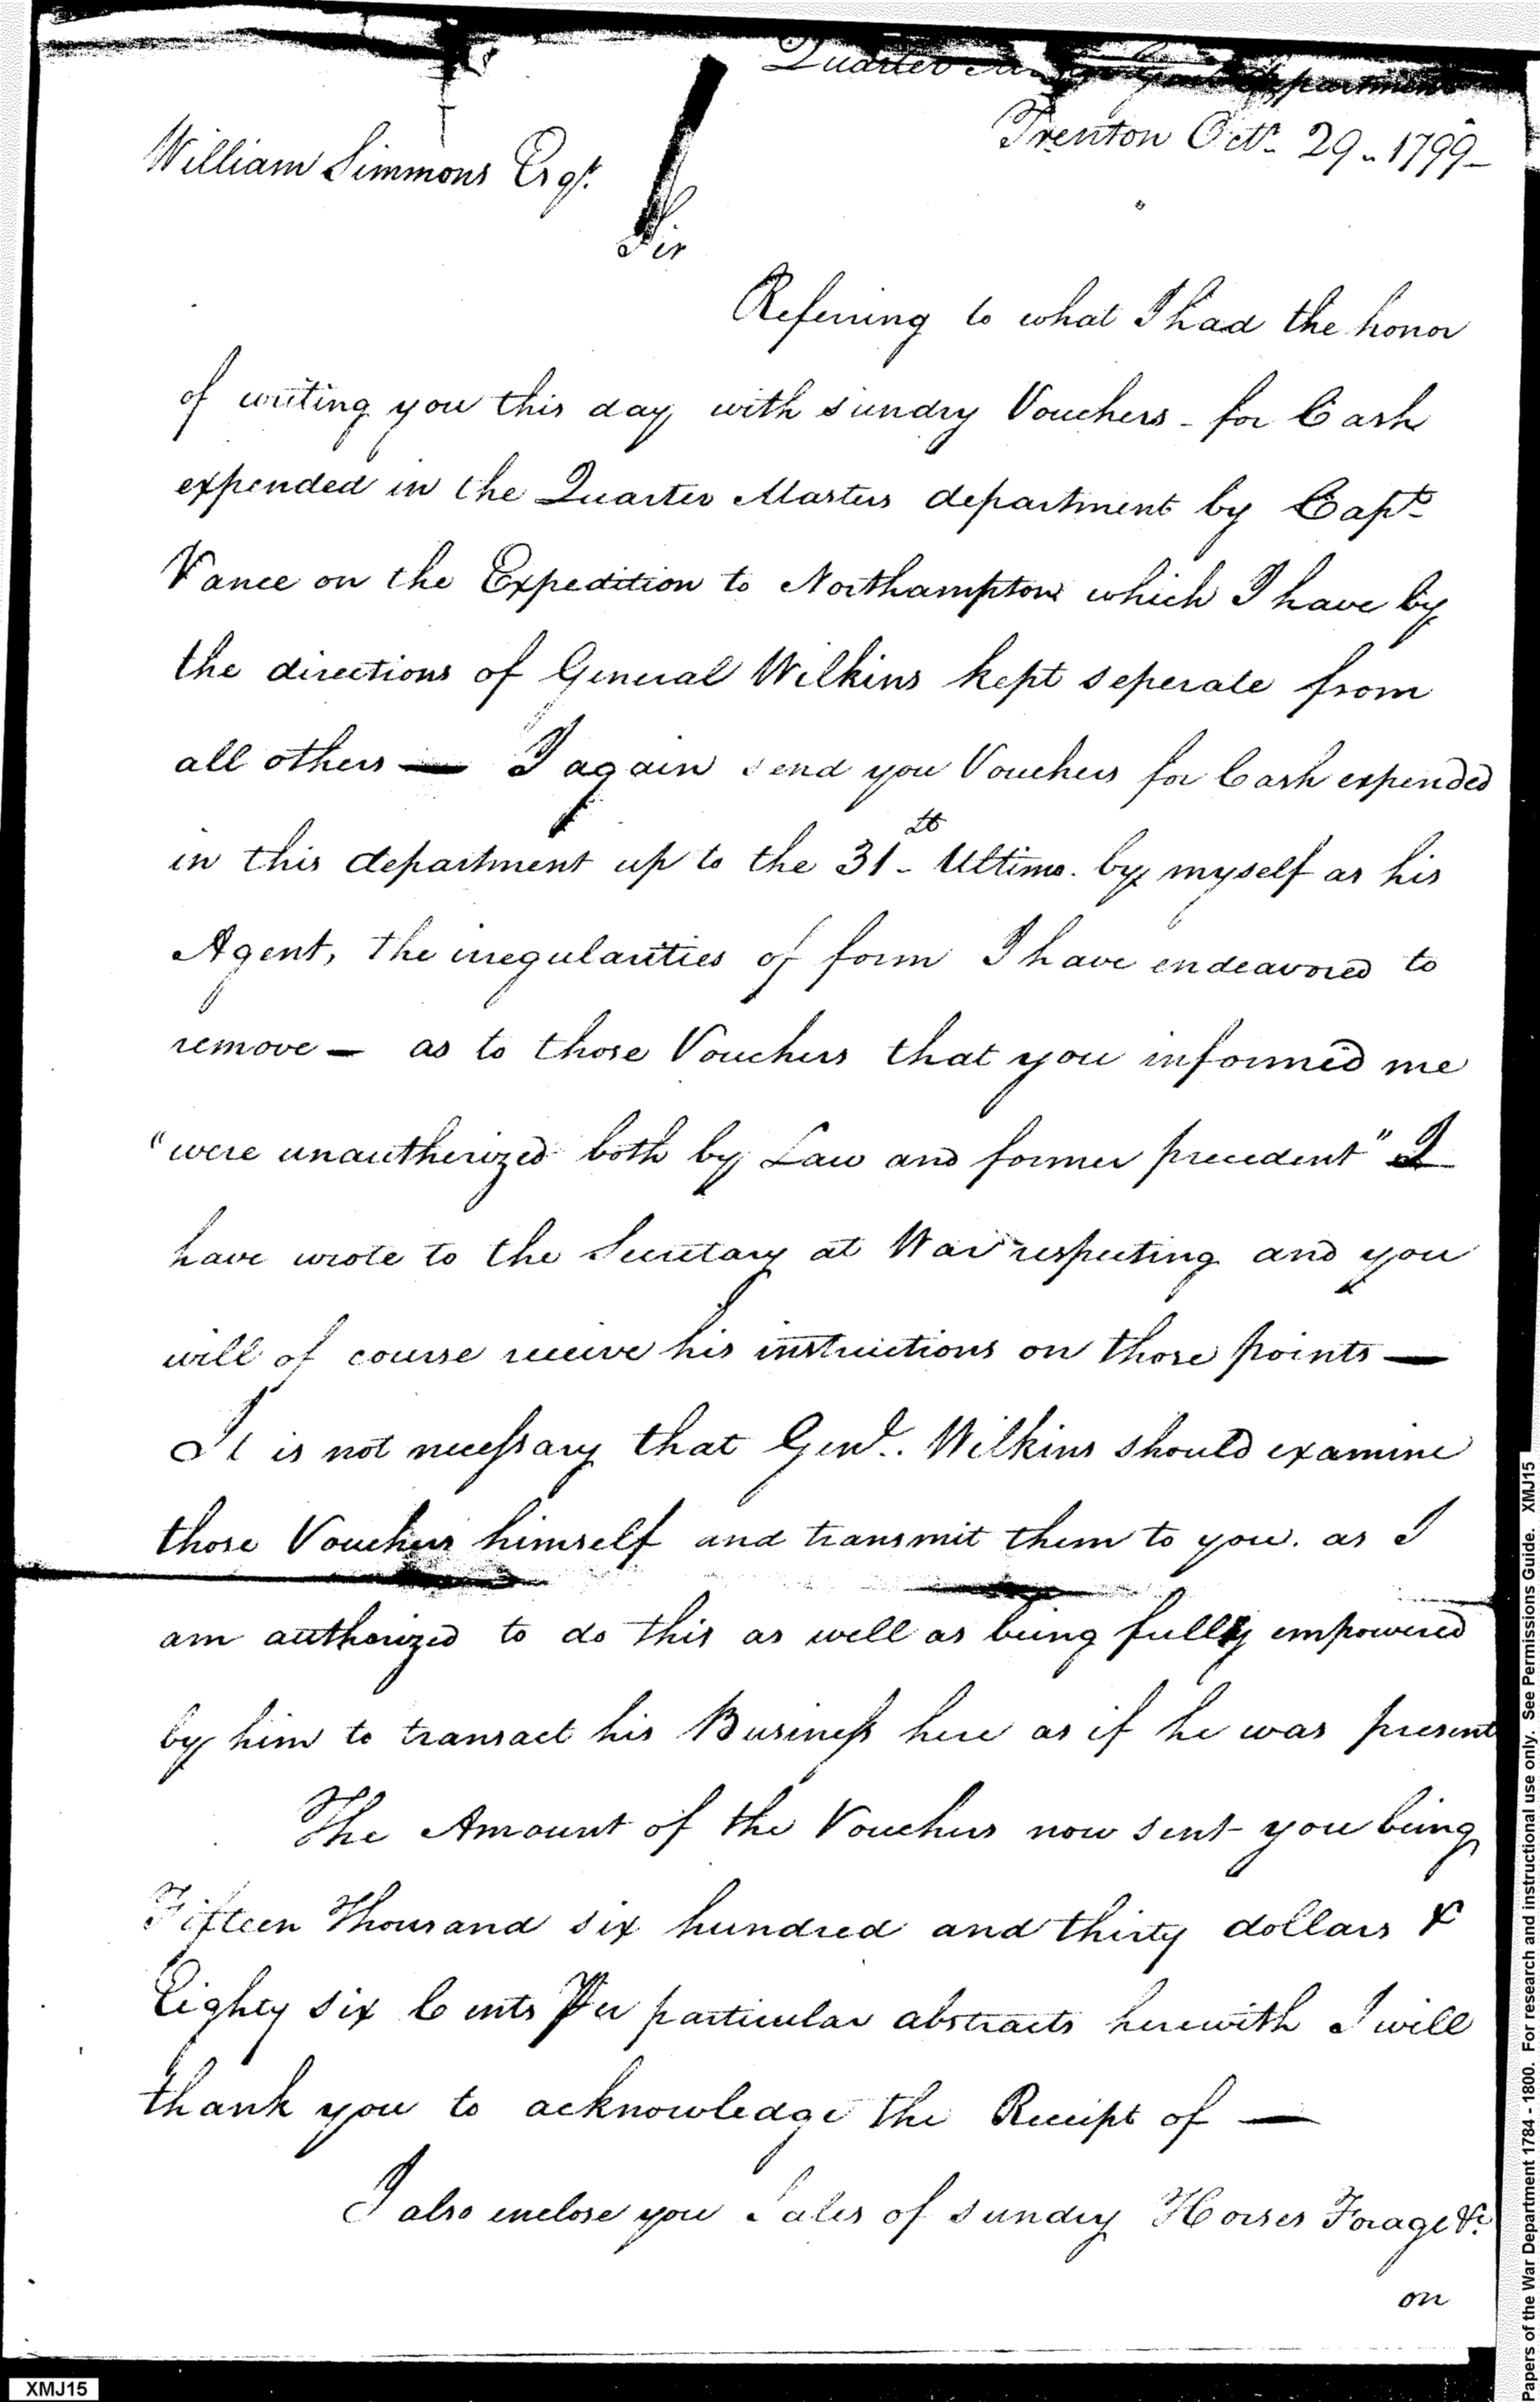 Quarter
department
Trenton Octr. 29. 1799
William Simmons Esqr.
Sir
Referring to what I had the honor
of writing you this day with sundry Vouchers - for Cash
expended in the Quarter Masters department by Capt.
Vance on the Expedition to Northampton which I have by
the directions of General Wilkins kept seperate from
all others — I again send you Vouchers for Cash expended
in this department up to the 31th - Ultimo. by myself as his
Agent, the irregularities of form I have endeavored to
remove - as to those Vouchers that you informed me
"were unautherized both by Law and former precedent" I
have wrote to the Secretary at War respecting and you
will of course receive his instructions on those points —
It is not necessary that Genl. Wilkins should examine
those Vouchers himself and transmit them to you. as I
am authorized to do this as well as being fully empowered
by him to transact his Business here as if he was present
The Amount of the Vouchers now sent you being
Fifteen Thousand six hundred and thirty dollars &
Eighty six Cents Per particular abstracts herewith I will
thank you to acknowledge the Receipt of —
I also enclose you Sales of sundry Horses Forage &c.
on
XMJ15
Papers of the War Department 1784 - 1800. For research and instructional use only. See Permissions Guide. XMJ15